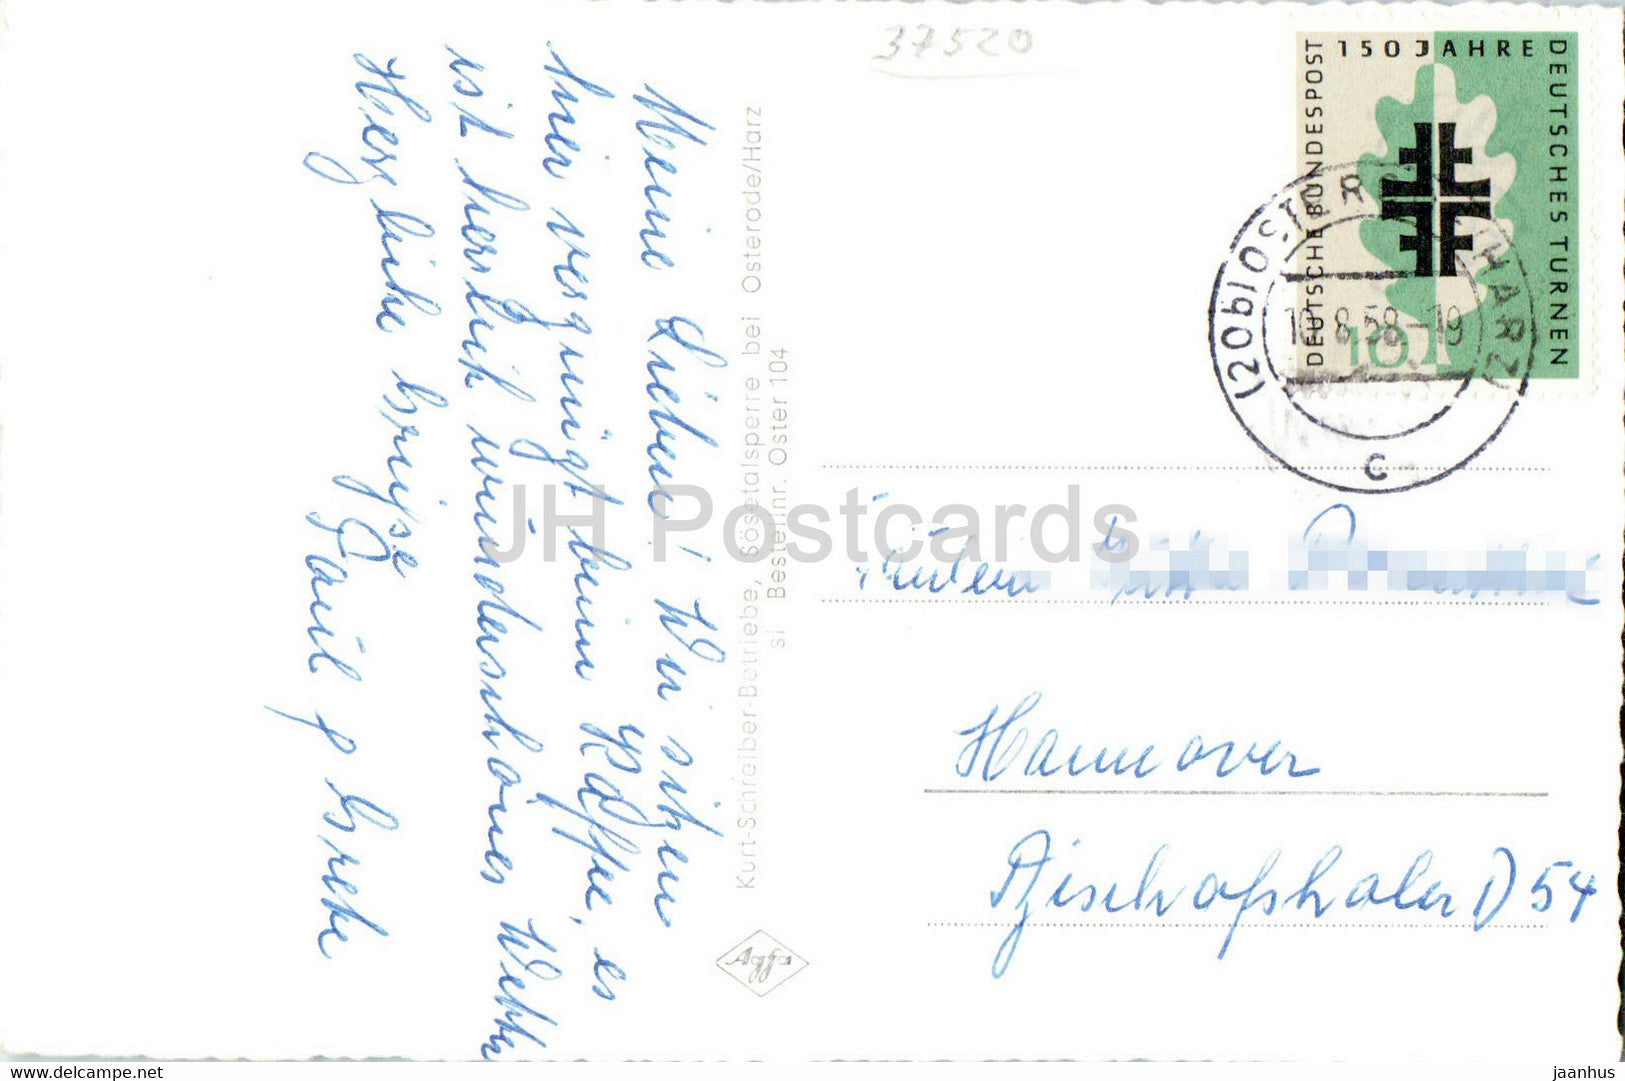 37520
150 JAHRE
DEUTSCHES TURNEN
DEUTSCHE BUNDESPOST
10
(20b) OSTERODE (HARZ)
10.8.58-19
c
Meine Lieben! Wir sitzen
hier vergnügt beim Kaffee, es
ist herrlich wunderschönes Wetter
Herzliche Grüsse
Kurt-Schreiber-Betriebe, Sösetalsperre bei Osterode/Harz
si Bestellnr. Oster 104
Agfa
Fräulein
Hannover
Bischofsholer D 54
JH Postcards
jaanhus